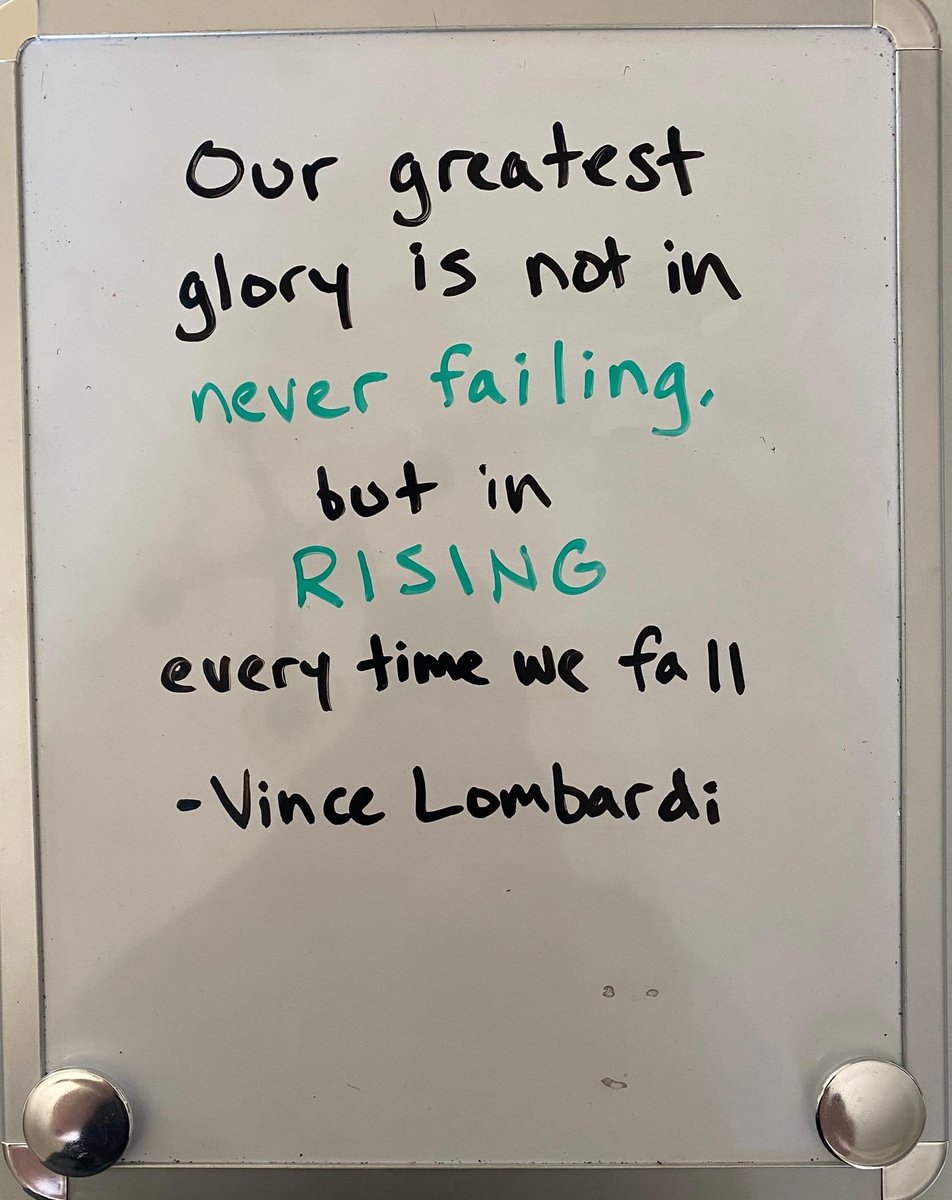 Our greatest
glory is not in
never failing,
but in
RISING
every time we fall
-Vince Lombardi